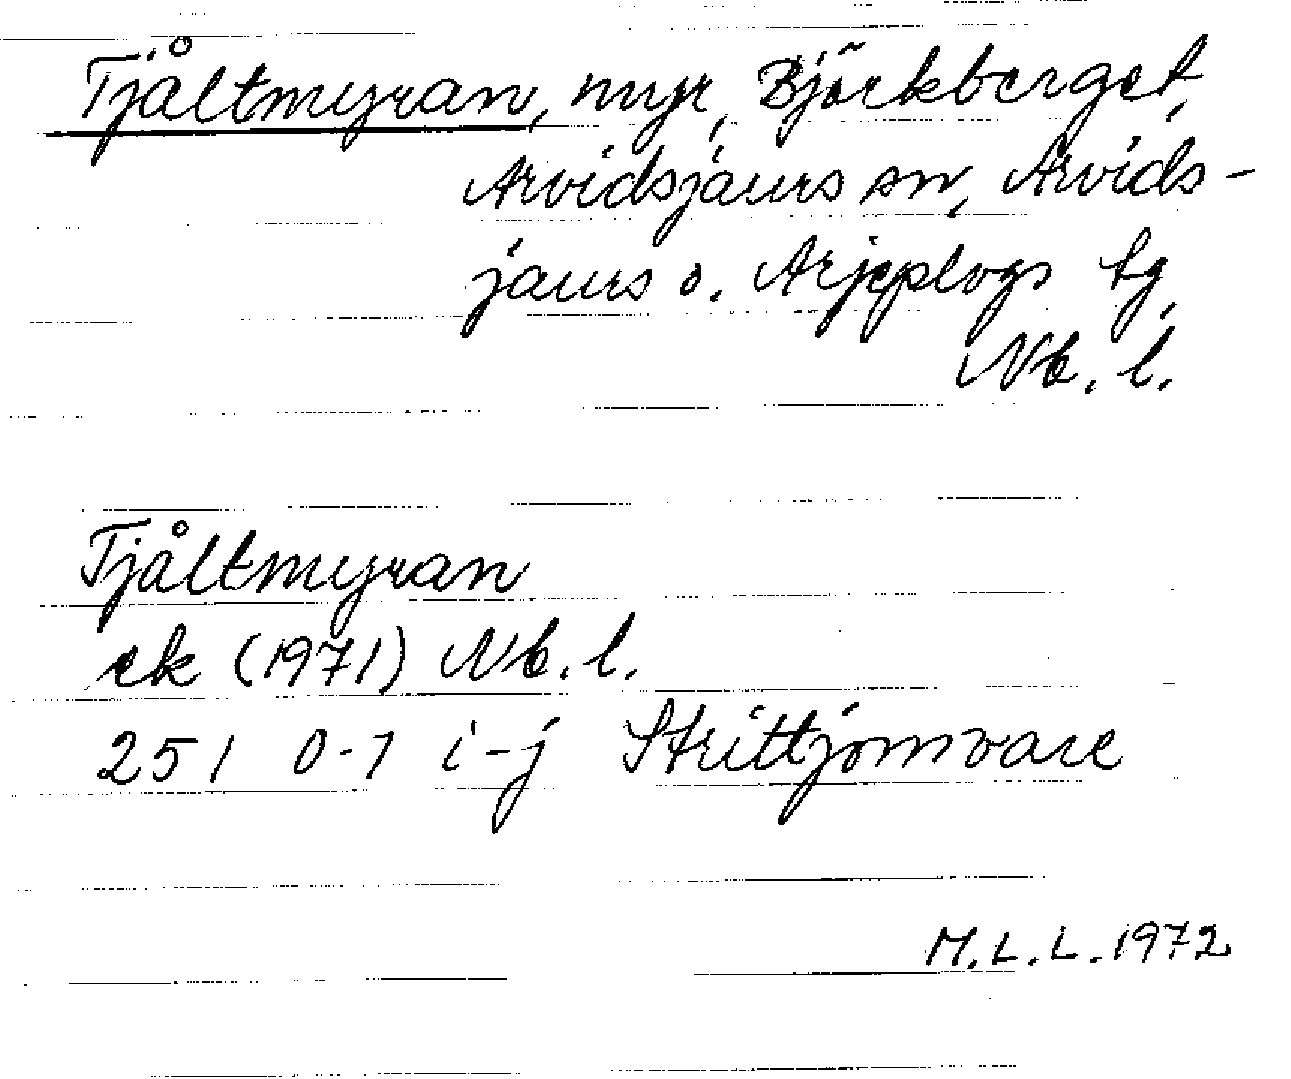 Tjåltmyran, myr, Björkberget,
Arvidsjaurs sn, Arvids-
jaurs o. Arjeplogs tg,
Nb. l.
Tjåltmyran
ek (1971) Nb. l.
251 0-1 i-j Strittjomvare
M.L.L. 1972